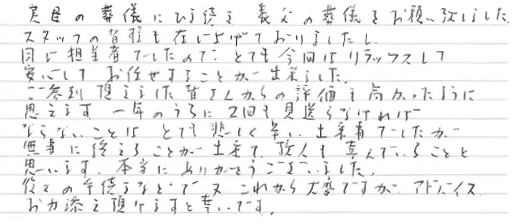 実母の葬儀にひき続き義父の葬儀をお願い致しました。
スタッフの皆様も存じ上げておりましたし
同じ担当者でしたので、とても今回はリラックスして
安心してお任せすることが出来ました。
ご参列頂きました皆さんからの評価も高かったように
思えます 一年のうちに2回も見送らなければ
ならないことは とても悲しく辛い出来事でしたが
無事に終えることが出来て、故人も喜んでいることと
思います。本当にありがとうございました。
後々の手続きなどでまたこれから大変ですが、アドバイス
お力添え頂けますと幸いです。